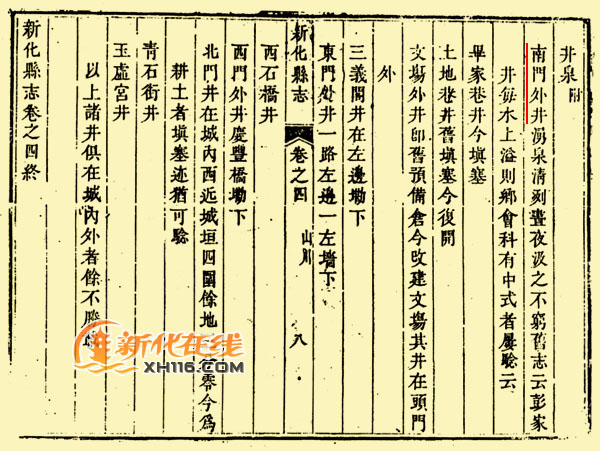 井泉附
南門外井湧泉清冽晝夜汲之不窮舊志云彭家
井每水上溢則鄉會科有中式者屢驗云
畢家巷井今塡塞
土地巷井舊塡塞今復開
文塲外井卽舊預備倉今改建文塲其井在頭門
外
三義閣井在左邊坳下
新化縣志 卷之四 山川 八
東門外井一路左邊一左墻下
西石橋井
西門外井慶豐橋坳下
北門井在城內西近城垣四圍餘地 零今爲
耕土者塡塞迹猶可驗
靑石街井
玉虛宮井
以上諸井俱在城內外者餘不勝
新化縣志卷之四終
新化在线
XH116.COM